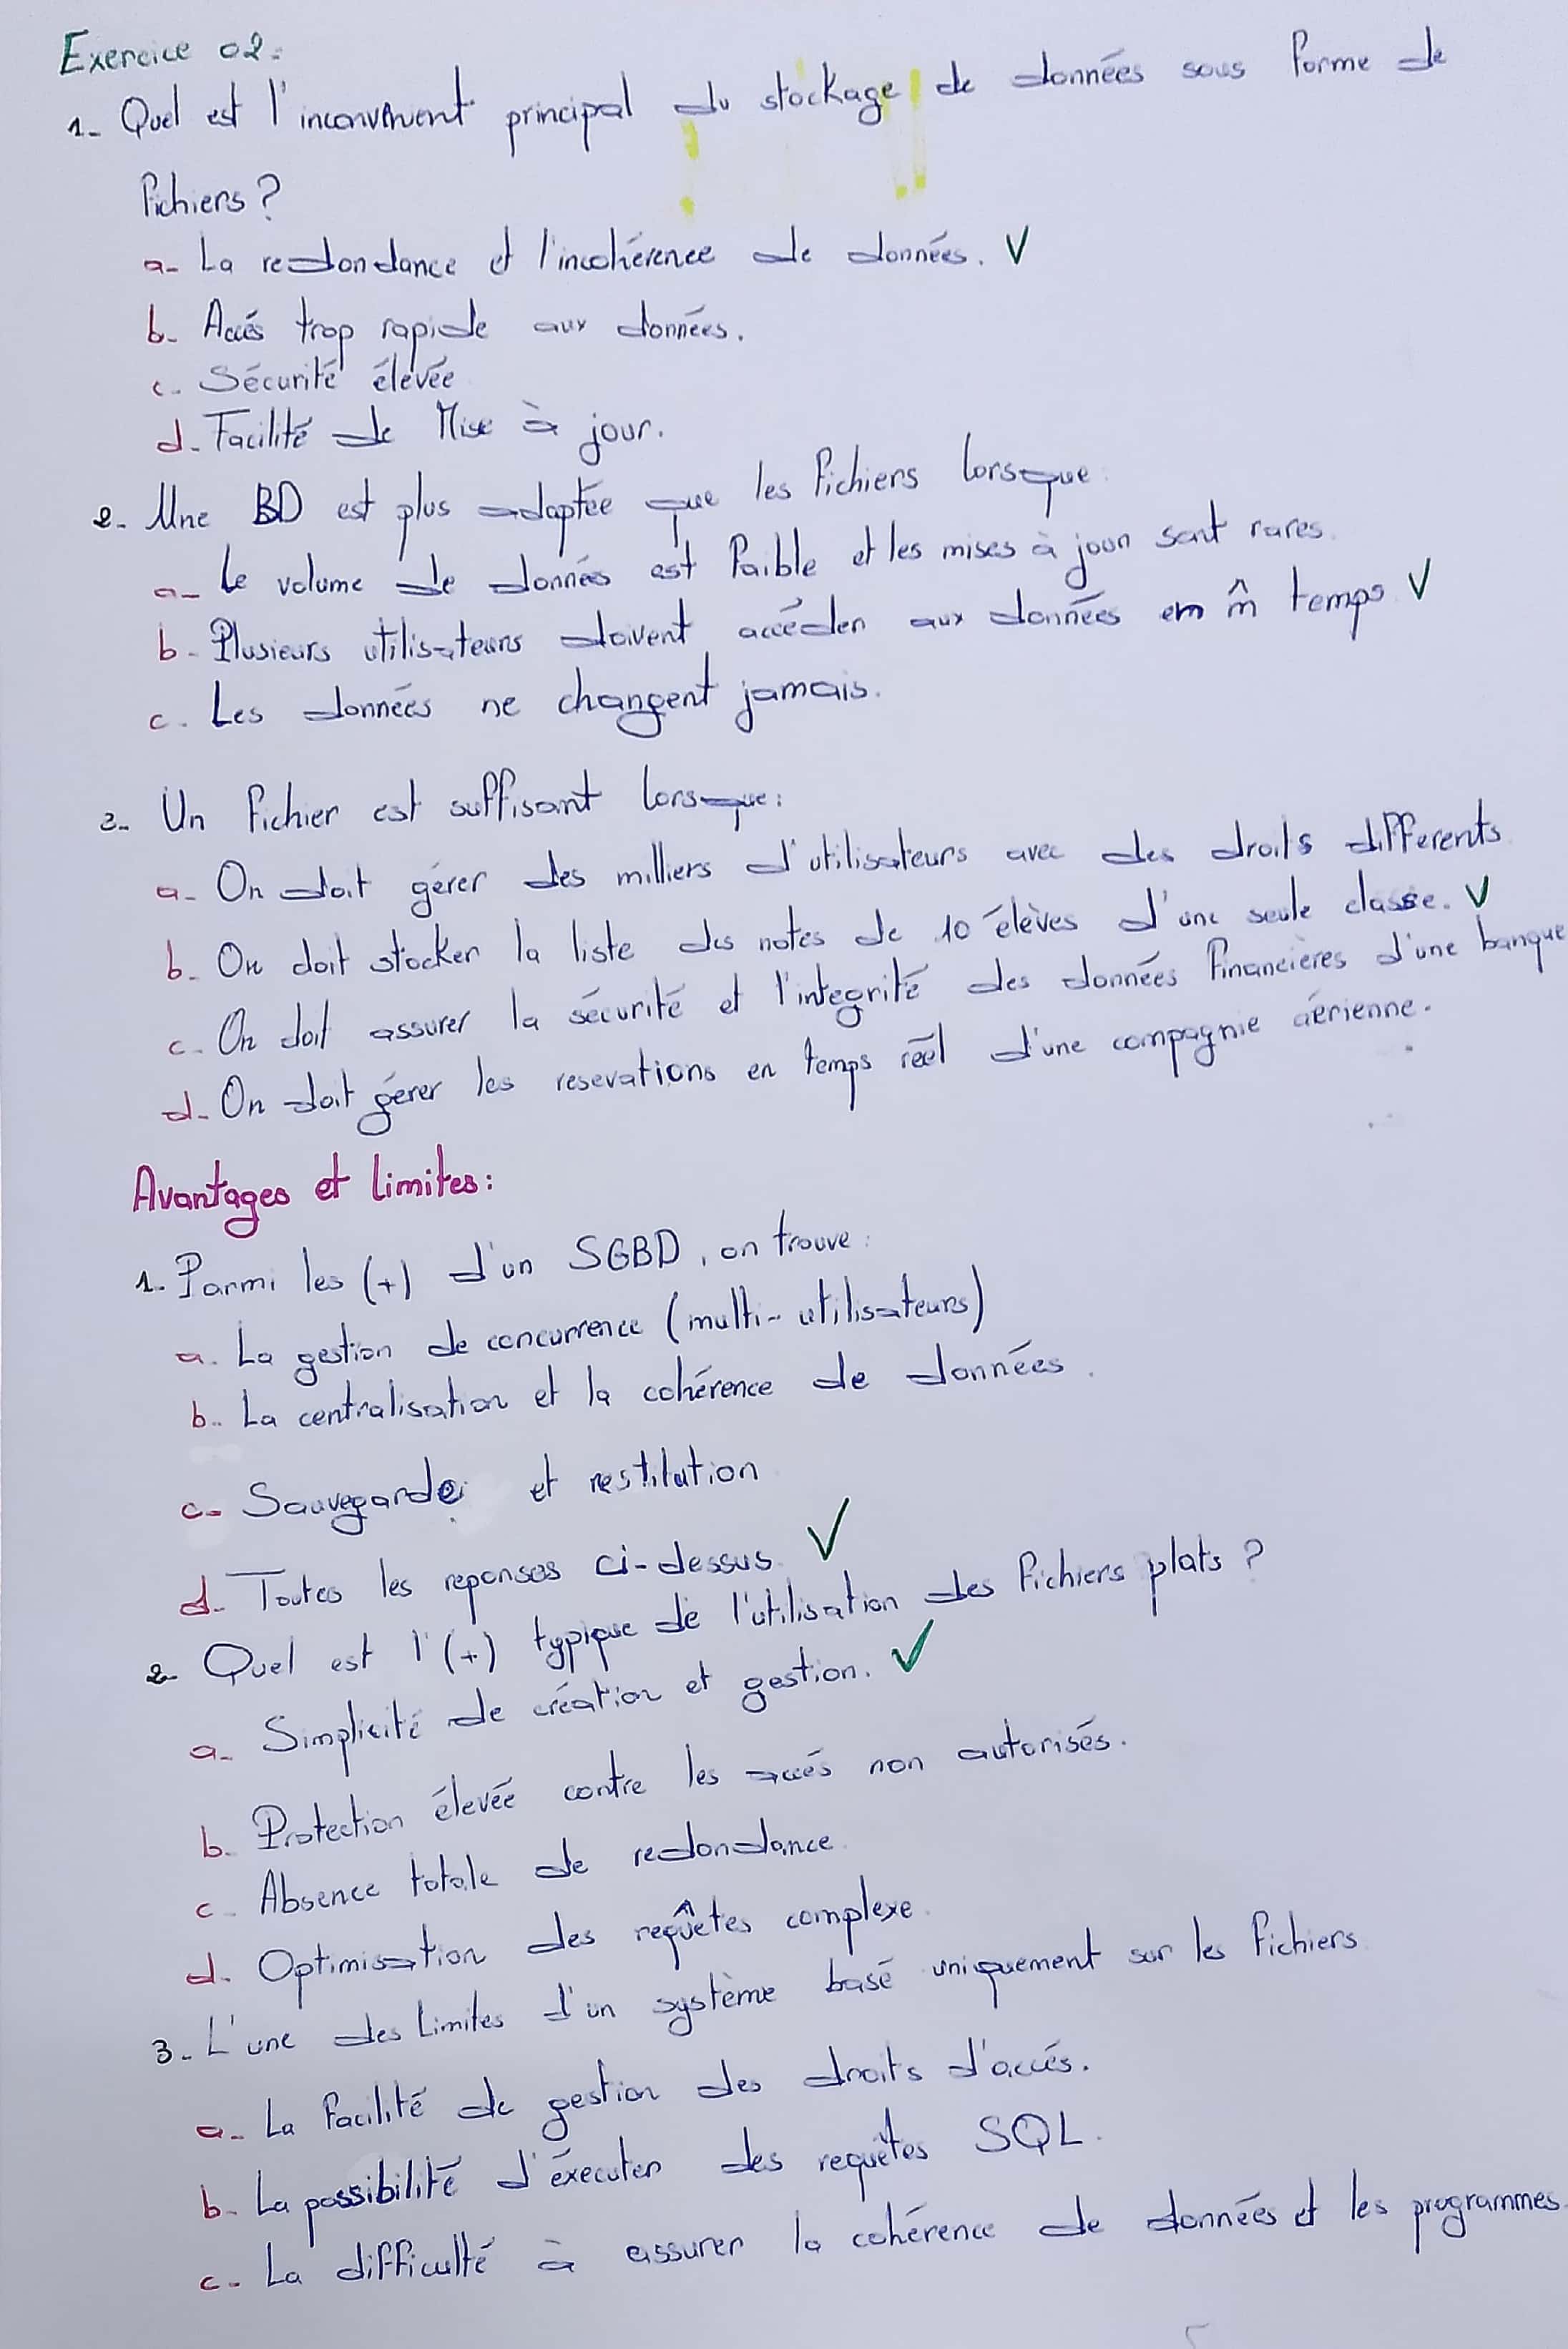 Exercice 02:
1- Quel est l'inconvénient principal du stockage de données sous forme de
fichiers ?
a- La redondance et l'incohérence de données. V
b- Accés trop rapide aux données.
c- Sécurité élevée
d- Facilité de Mise à jour.
2- Une BD est plus adaptée que les fichiers lorsque:
a- Le volume de données est faible et les mises à jour sont rares.
b- Plusieurs utilisateurs doivent accéder aux données en m̂ temps V
c- Les données ne changent jamais.
3- Un fichier est suffisant lorsque:
a- On doit gérer des milliers d'utilisateurs avec des droits differents
b- On doit stocker la liste des notes de 10 élèves d'une seule classe. V
c- On doit assurer la sécurité et l'integrité des données financières d'une banque
d- On doit gérer les resevations en temps réel d'une compagnie aérienne.
Avantages et limites:
1- Parmi les (+) d'un SGBD, on trouve:
a. La gestion de concurrence (multi-utilisateurs)
b. La centralisation et la cohérence de données.
c- Sauvegarde et restitution
d- Toutes les reponses ci-dessus V
2- Quel est l'(+) typique de l'utilisation des fichiers plats ?
a- Simplicité de création et gestion. V
b. Protection élevée contre les accés non autorisés.
c- Absence totale de redondance.
d. Optimisation des requêtes complexe.
3- L'une des limites d'un système basé uniquement sur les fichiers
a- La facilité de gestion des droits d'accés.
b- La possibilité d'éxecuter des requêtes SQL.
c- La difficulté à assurer la cohérence de données et les programmes.